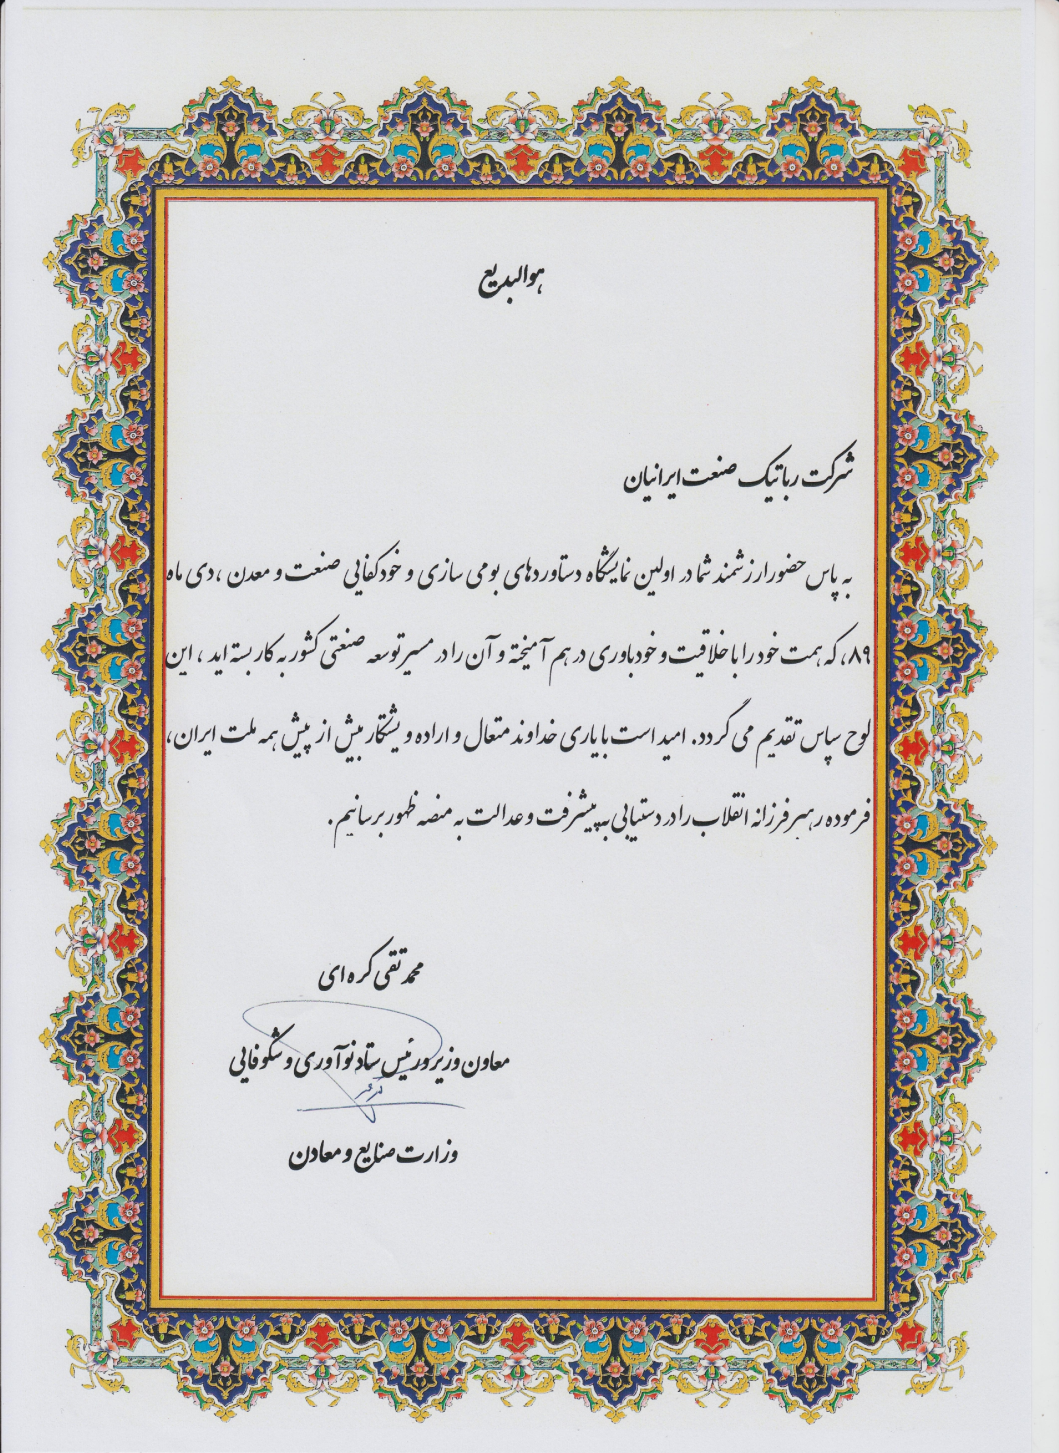 هوالبدیع
شرکت رباتیک صنعت ایرانیان
به پاس حضور ارزشمند شما در اولین نمایشگاه دستاوردهای بومی سازی و خودکفایی صنعت و معدن ، دی ماه
۸۹، که همت خود را با خلاقیت و خودباوری در هم آمیخته و آن را در مسیر توسعه صنعتی کشور به کار بسته اید ، این
لوح سپاس تقدیم می گردد. امید است با یاری خداوند متعال و اراده و پشتکار بیش از پیش همه ملت ایران،
فرموده رهبر فرزانه انقلاب را در دستیابی به پیشرفت و عدالت به منصه ظهور برسانیم.
محمد تقی کره ای
معاون وزیر و رئیس ستاد نوآوری و شکوفایی
وزارت صنایع و معادن